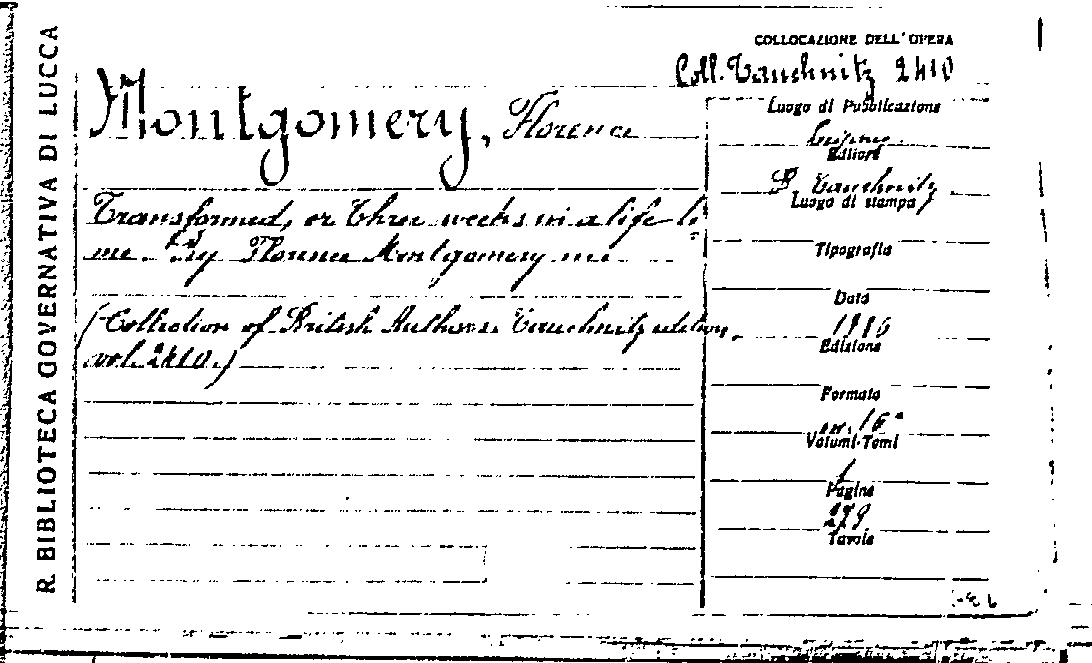 R. BIBLIOTECA GOVERNATIVA DI LUCCA
COLLOCAZIONE DELL'OPERA
Coll. Tauchnitz 2410
Montgomery, Florence
Transformed, or three weeks in a life ti-
me. By Florence Montgomery
(Collection of British Authors. Tauchnitz edition,
vol. 2410.)
Luogo di Pubblicazione
Editore
B. Tauchnitz
Luogo di stampa
Tipografia
Data
1886
Edizione
Formato
in 16°
Volumi-Tomi
1
Pagine
279
Tavole